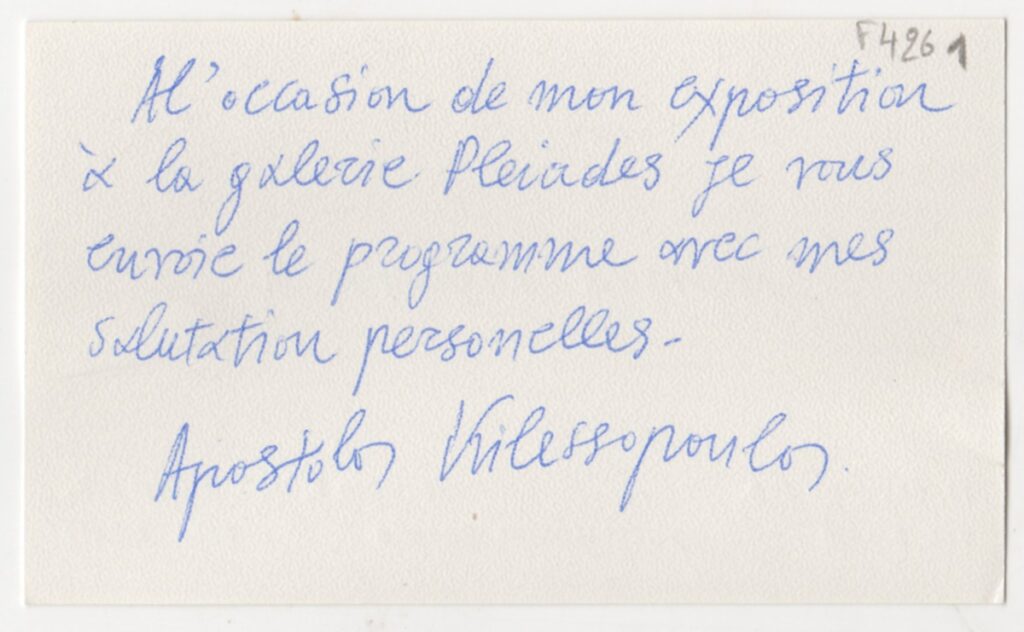 F4261
Al'occasion de mon exposition
à la galerie Pleiades je vous
envoie le programme avec mes
salutation personelles-
Apostolos Kilessopoulos.